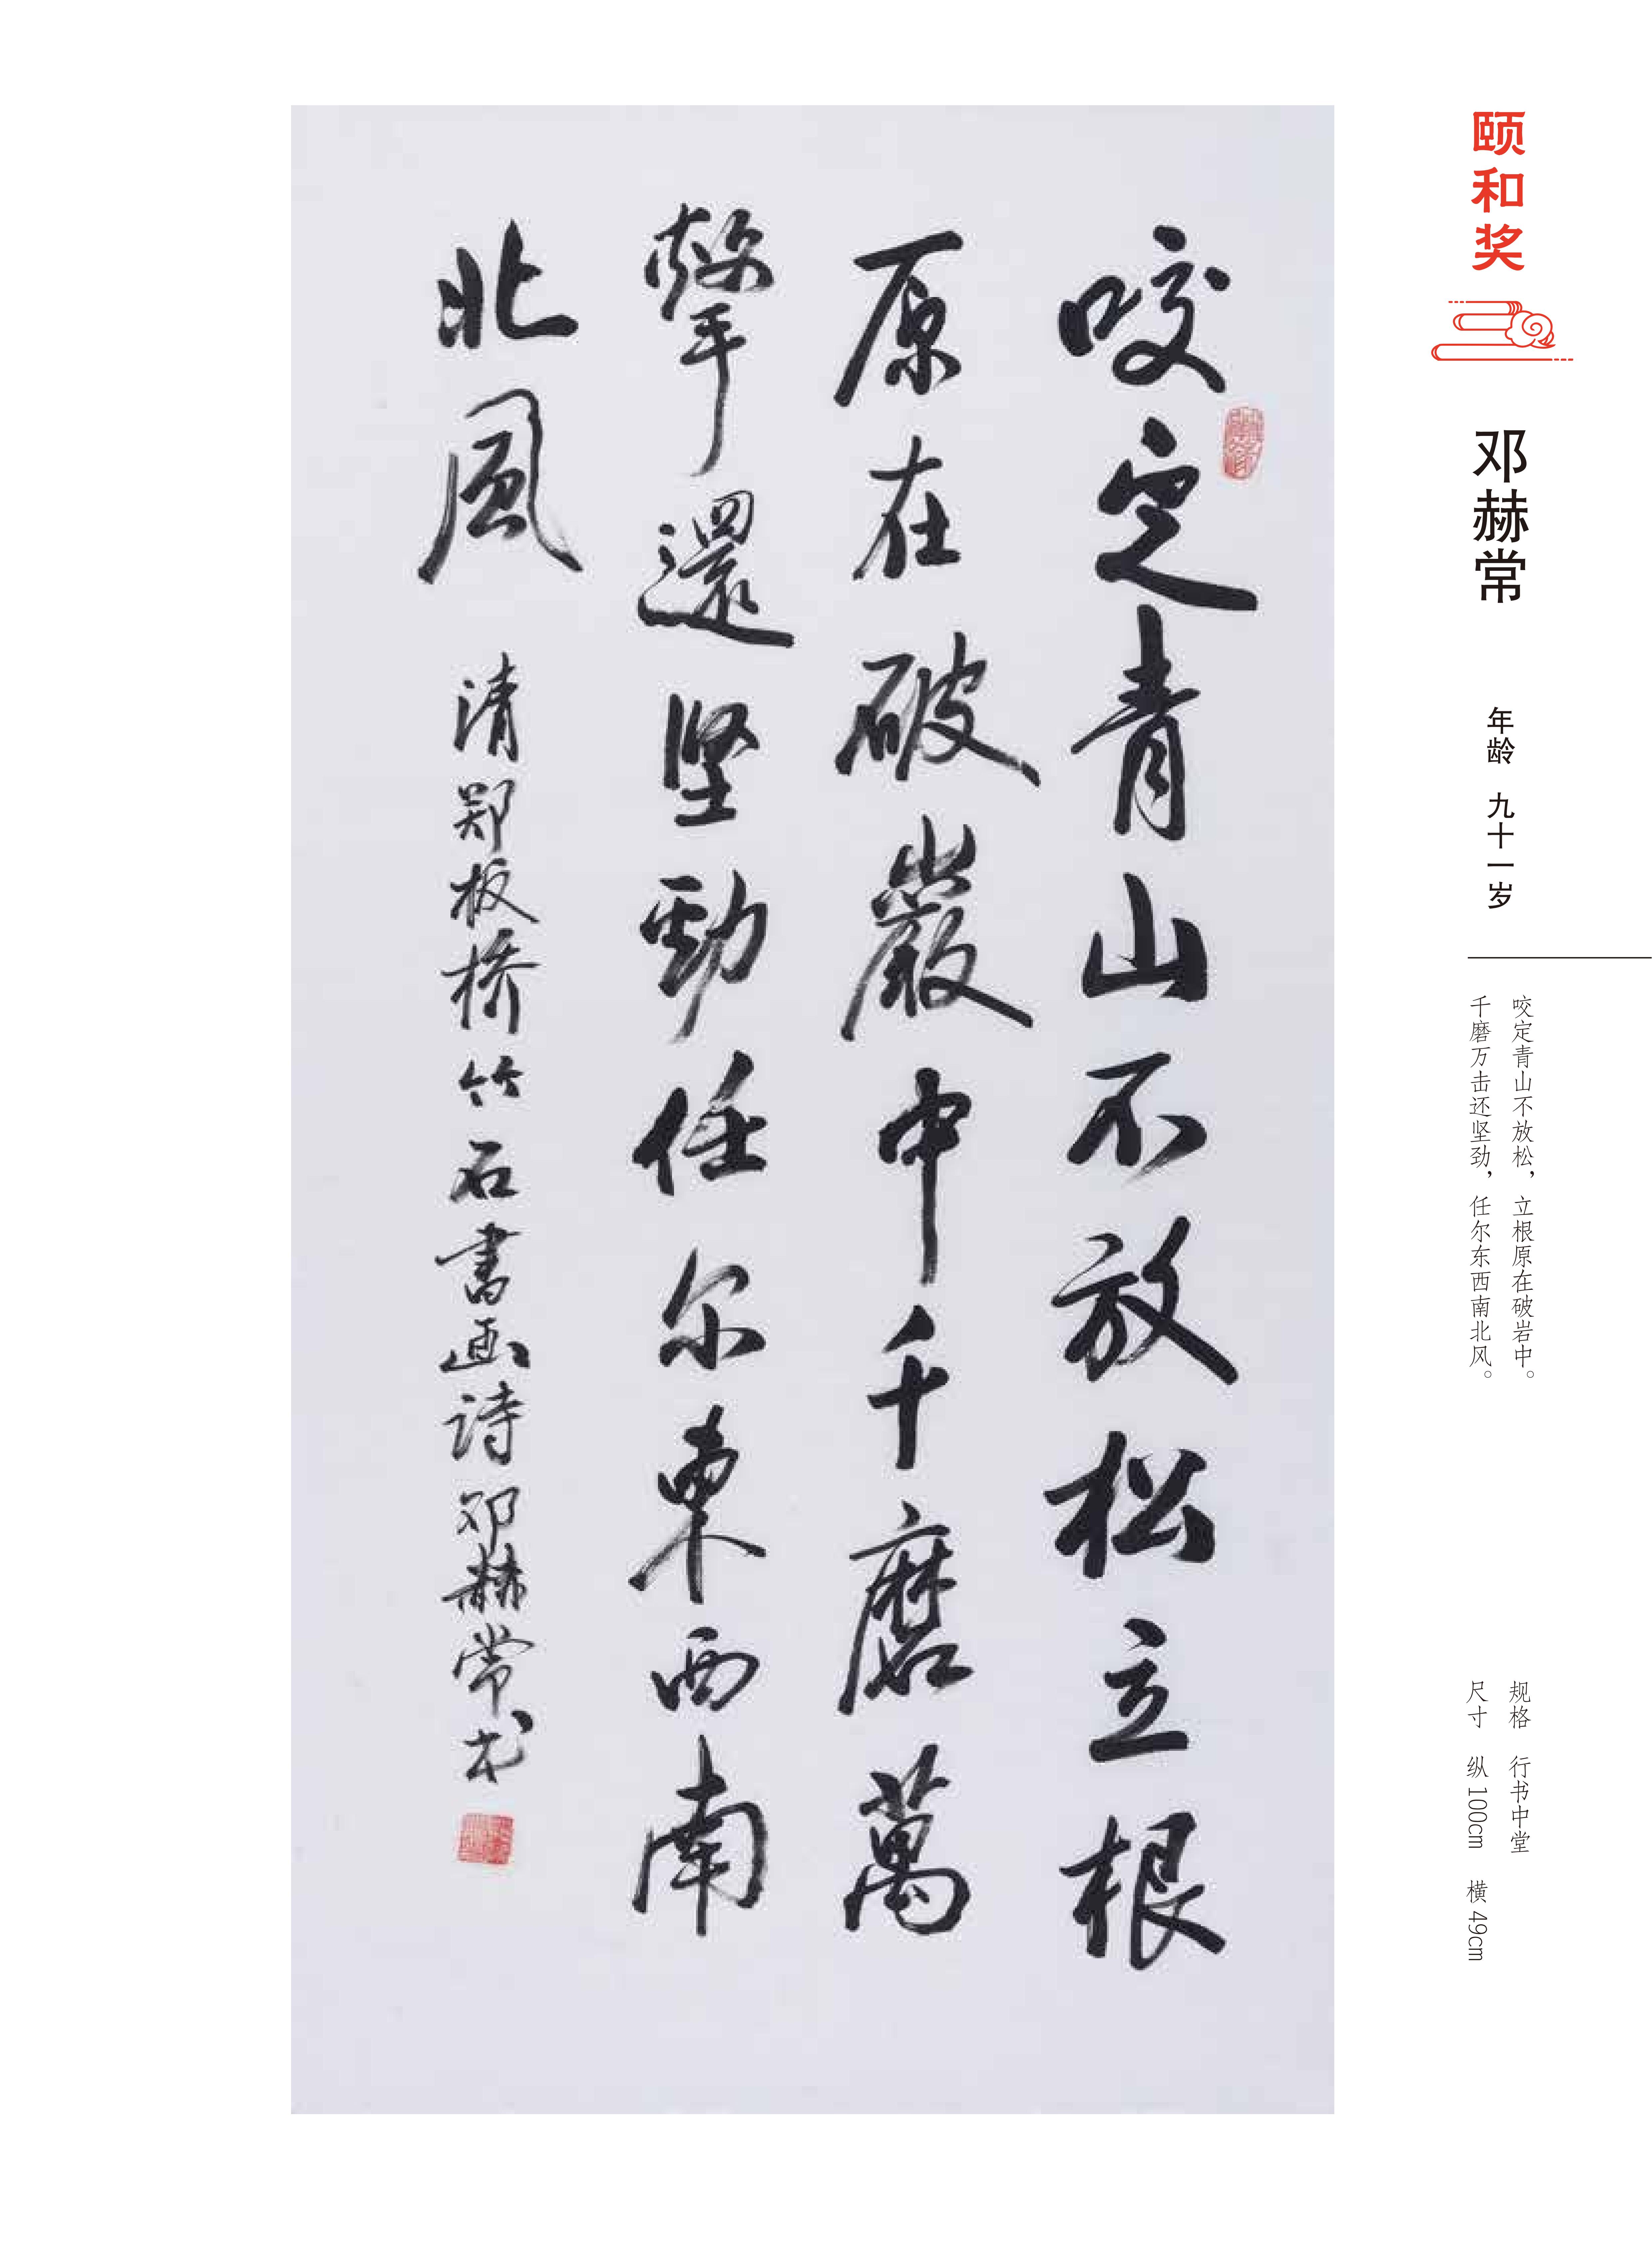 颐和奖
邓赫常
年龄 九十一岁
咬定青山不放松，立根原在破岩中。
千磨万击还坚劲，任尔东西南北风。
规格 行书中堂
尺寸 纵100cm 横49cm
咬定青山不放松立根
原在破巖中千磨萬
擊還坚勁任尔東西南
北風
清郑板桥竹石書画诗邓赫常书